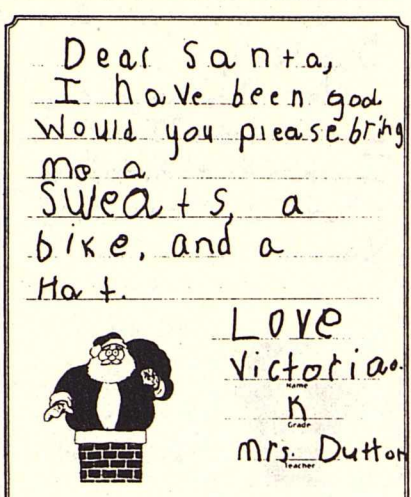 Dear Santa,
I have been god.
Would you please bring
me a
Sweats, a
bike, and a
Hat.
Love
Victoria.
Name
K
Grade
Mrs. Dutton
Teacher